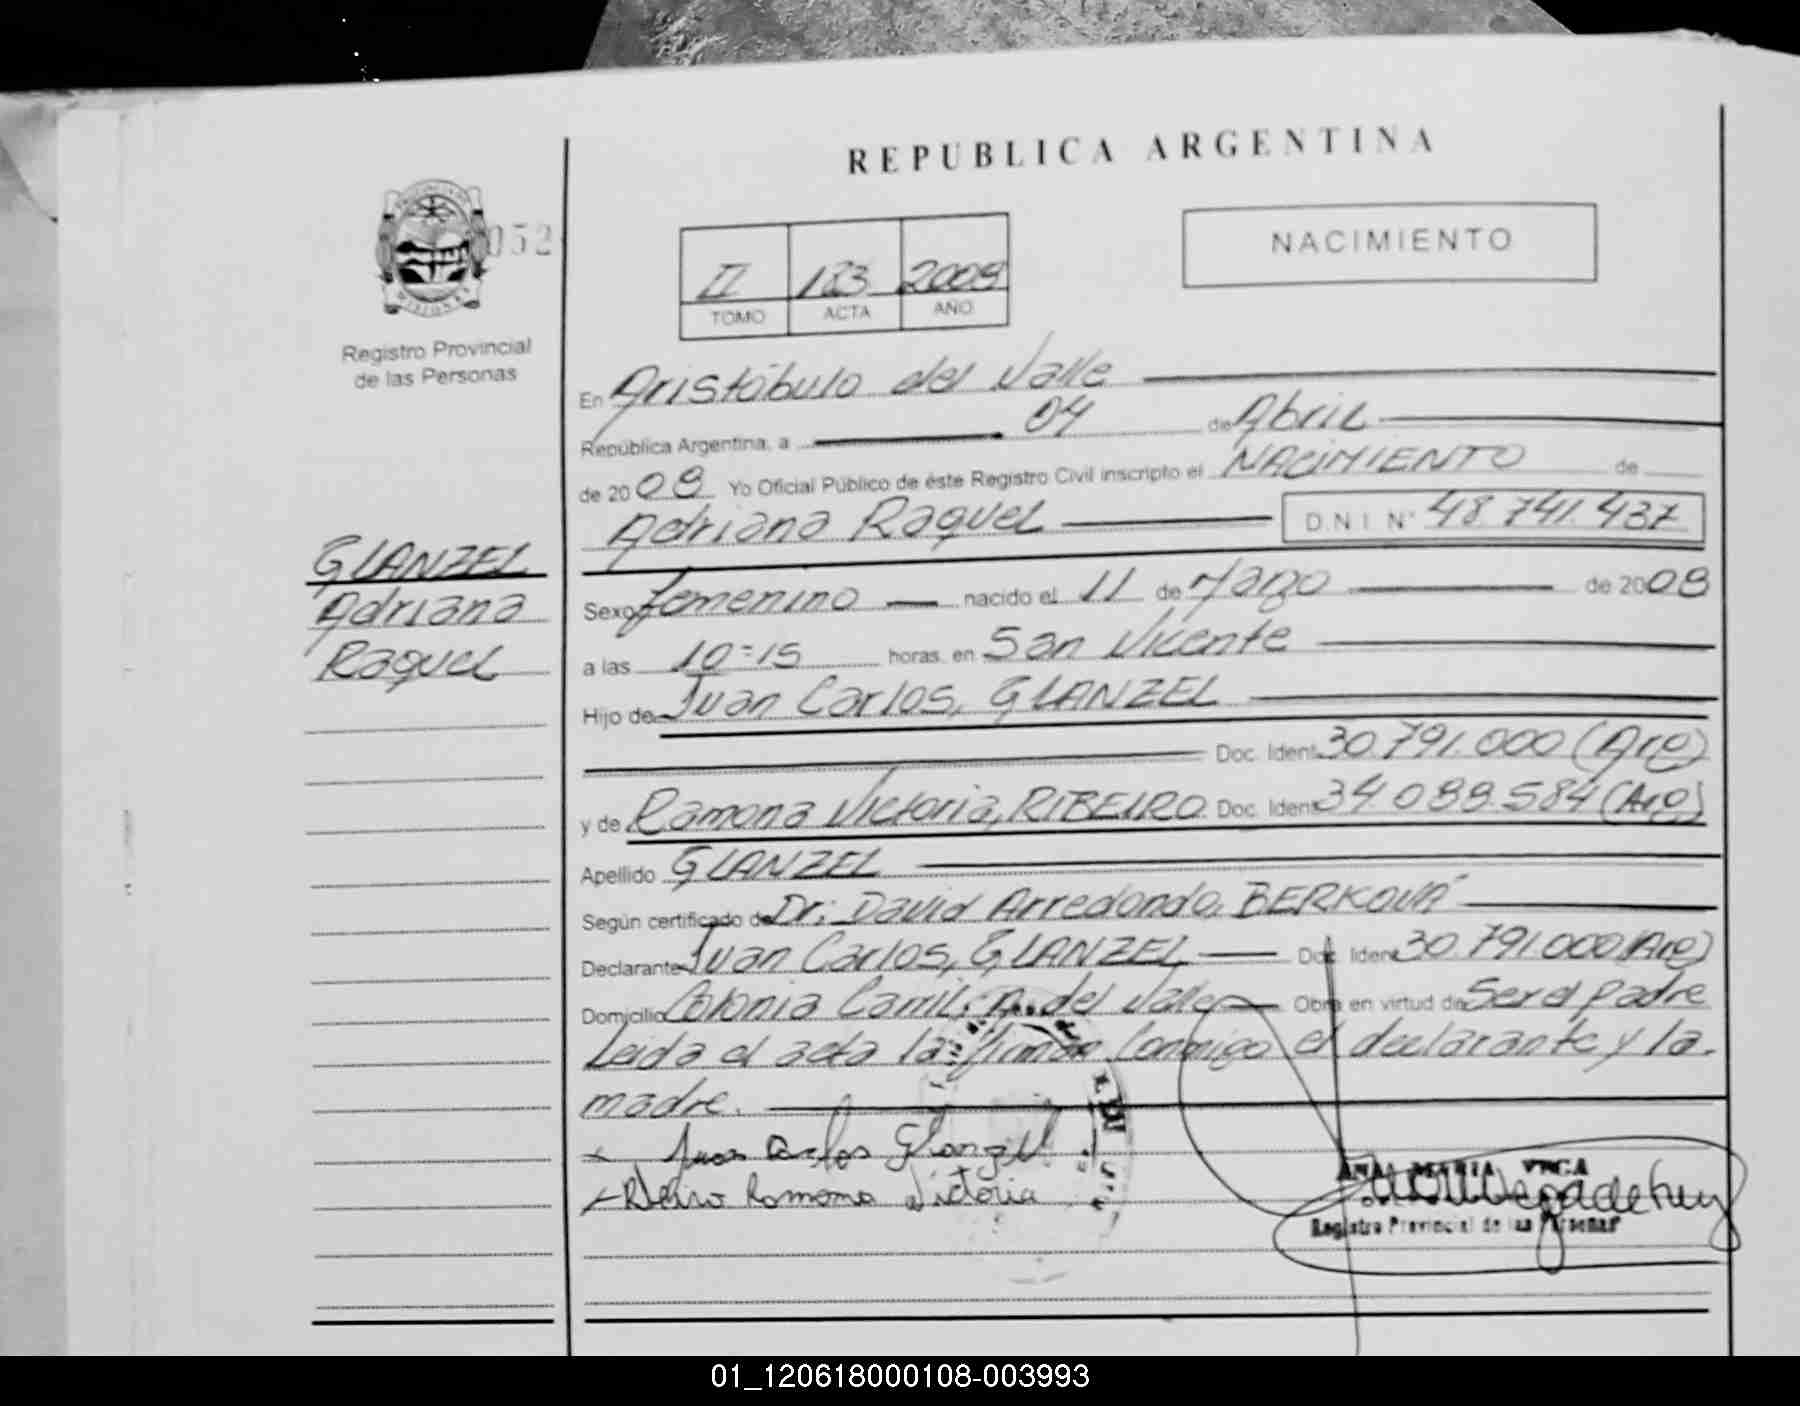 REPUBLICA ARGENTINA
052
NACIMIENTO
II 183 2008
TOMO ACTA AÑO
MISIONES
Registro Provincial
de las Personas
En Aristóbulo del Valle
República Argentina, a 04 de Abril
de 20 08 Yo Oficial Público de éste Registro Civil inscripto el NACIMIENTO de
Adriana Raquel D.N.I. N° 48.741.437
GLANZEL
Adriana
Raquel
Sexo Femenino nacido el 11 de Marzo de 2008
a las 10=15 horas, en San Vicente
Hijo de Juan Carlos, GLANZEL
Doc. Ident. 30.791.000 (Arg)
y de Ramona Victoria, RIBEIRO. Doc. Ident. 34.089.584 (Arg)
Apellido GLANZEL
Según certificado de Dr: David Arredondo,
Declarante Juan Carlos, GLANZEL Doc. Ident. 30.791.000 (Arg)
Domicilio Colonia Camil; A. del Valle Obra en virtud de Ser el padre
Leida el acta la firman conmigo el declarante y la
madre.
x Juan Carlos Glanzel
x Ramona Victoria
ANA MARIA VEGA
Registro Provincial de las Personas
01_120618000108-003993